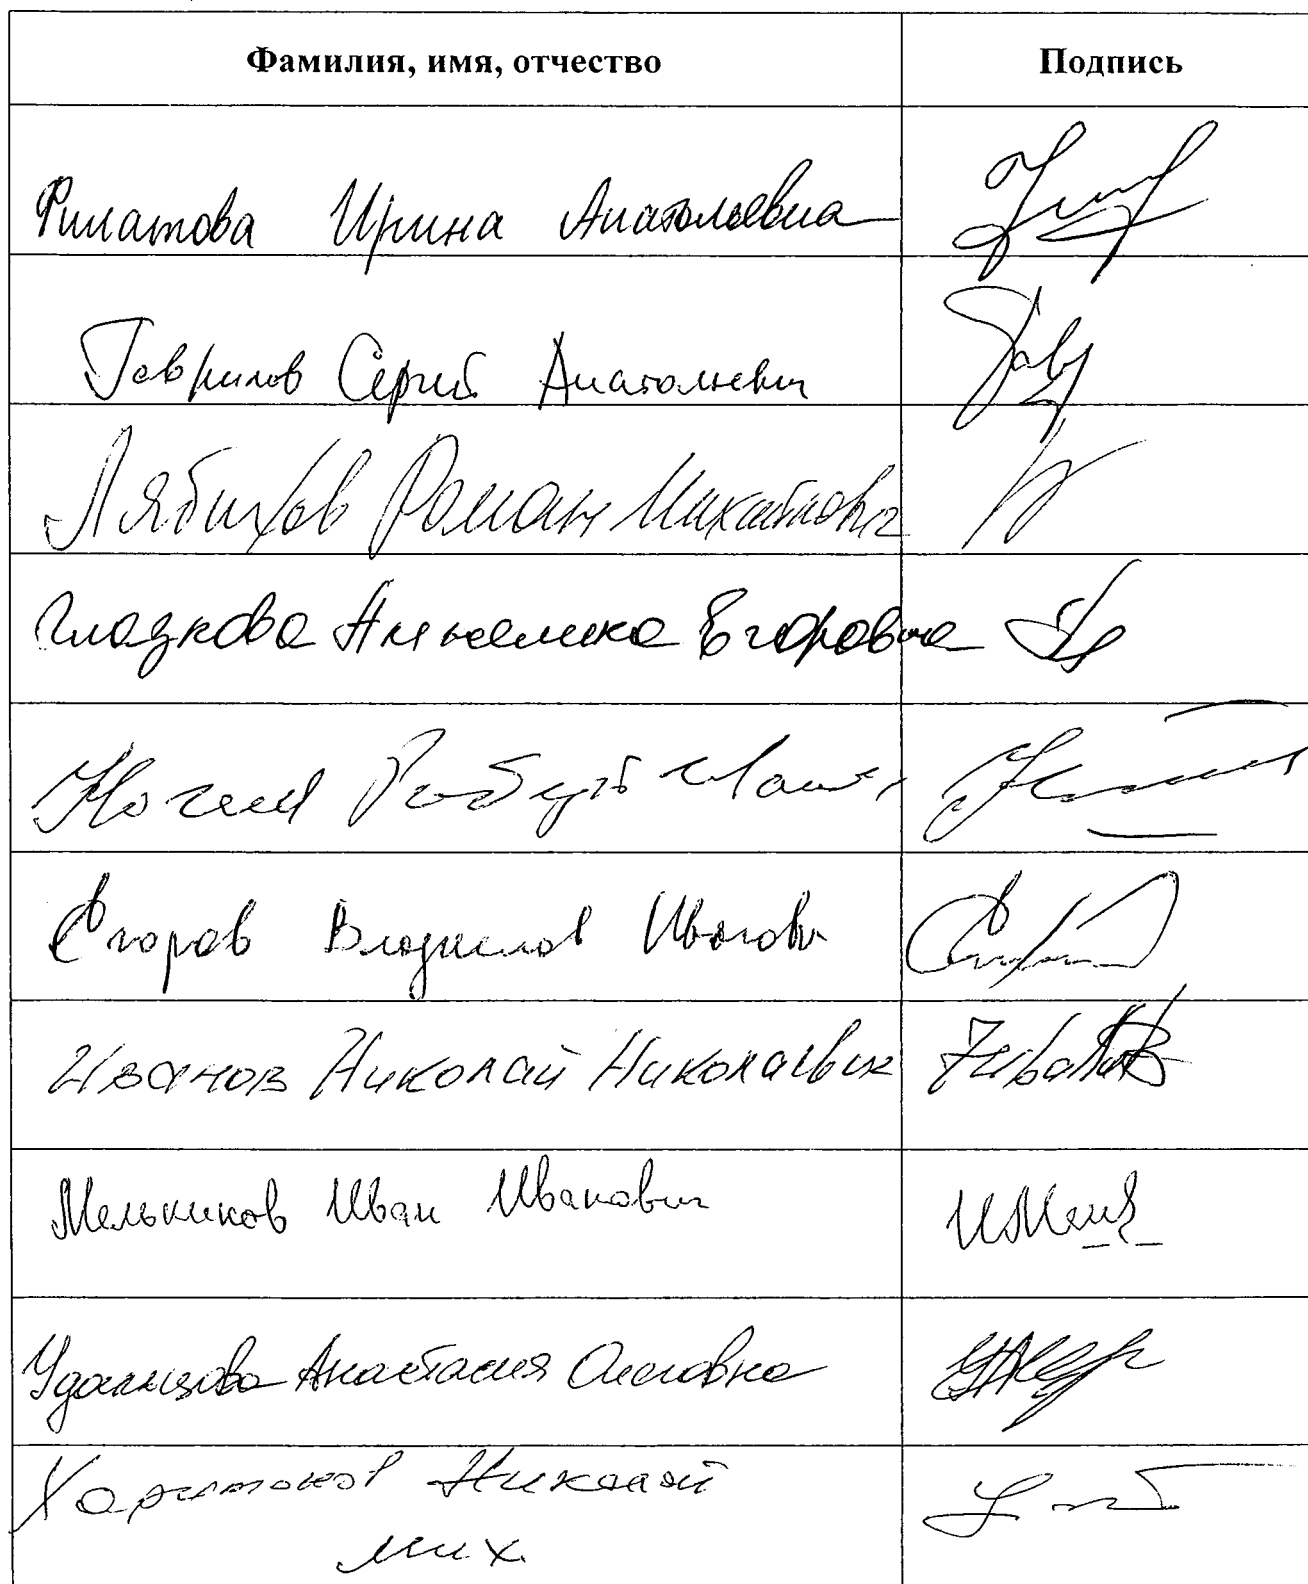 Фамилия, имя, отчество Подпись
Филатова Ирина Анатольевна
Гаврилов Сергей Анатольевич
Лябихов Роман Михайлович
Гладкова Анжелика Егоровна
Егоров Владислав Иванович
Иванов Николай Николаевич
Мельников Иван Иванович
Удальцова Анастасия Олеговна
Харитонов Николай
Мих.